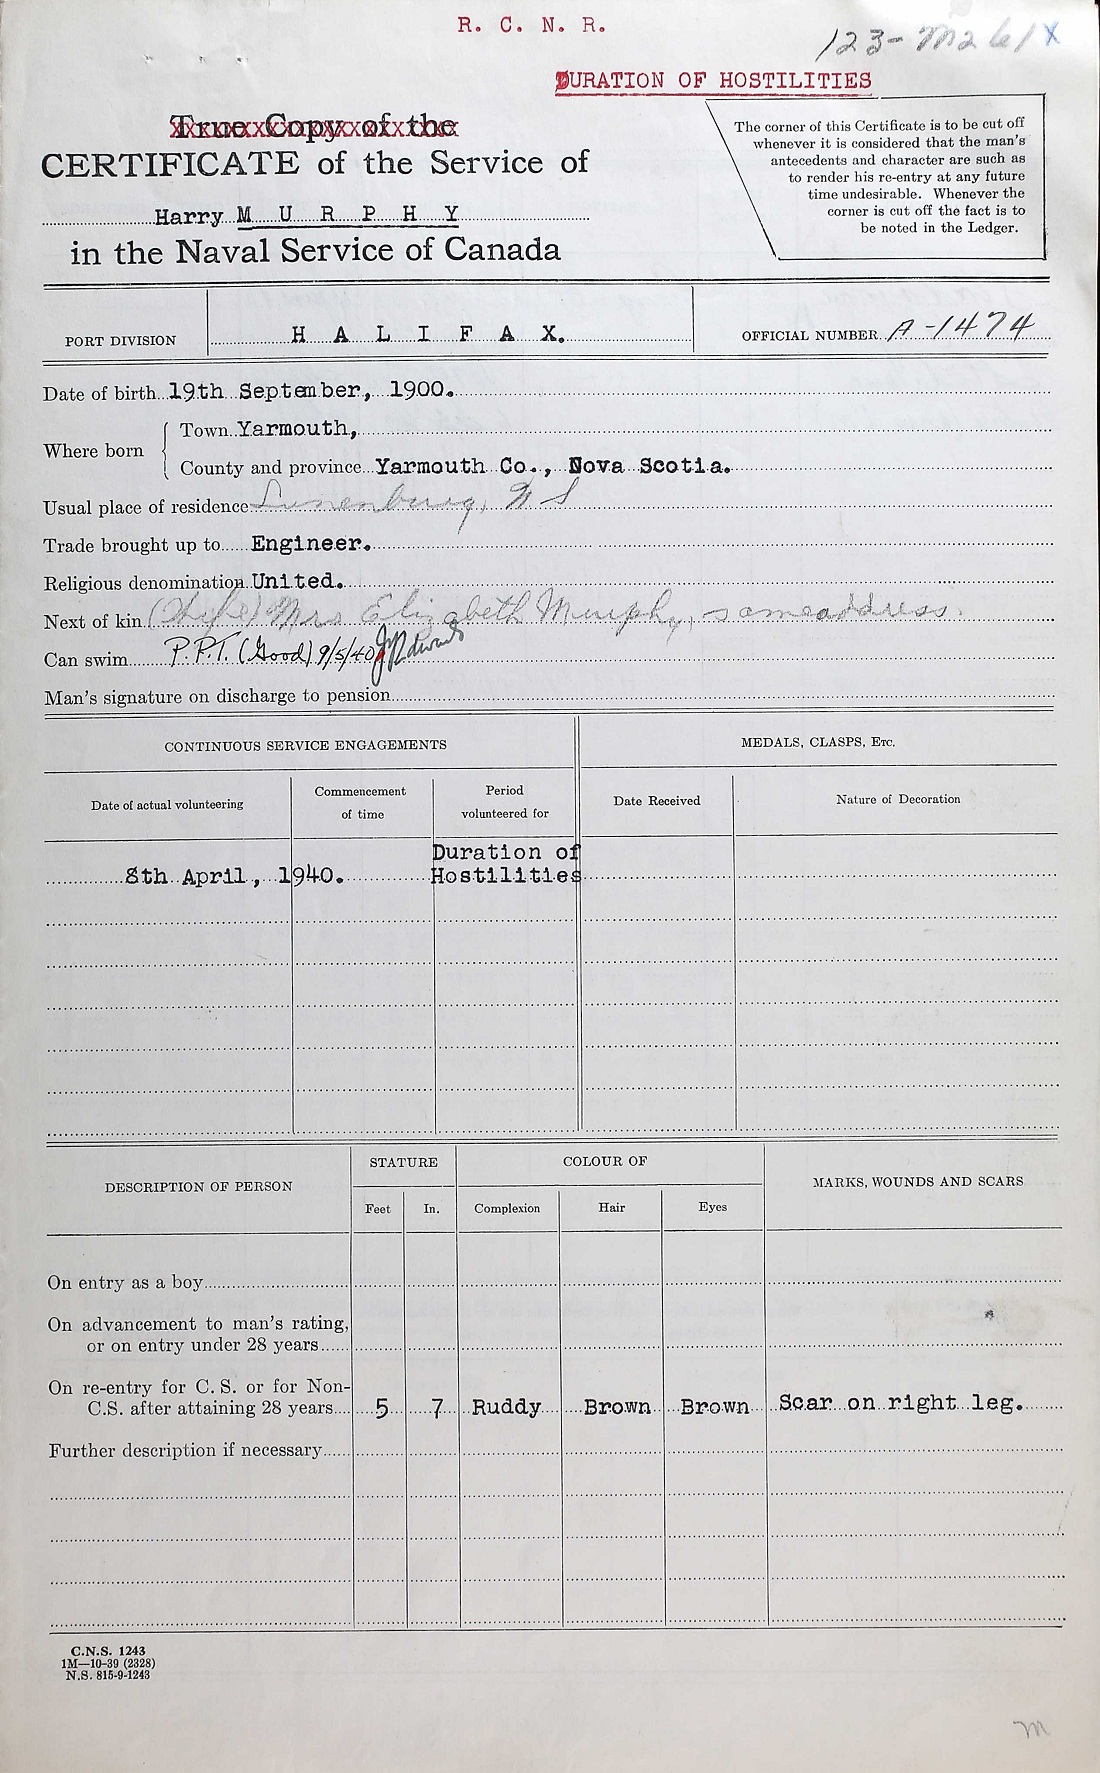 R. C. N. R.
123-M261X
DURATION OF HOSTILITIES
True Copy of the
CERTIFICATE of the Service of
Harry M U R P H Y
in the Naval Service of Canada
The corner of this Certificate is to be cut off
whenever it is considered that the man's
antecedents and character are such as
to render his re-entry at any future
time undesirable. Whenever the
corner is cut off the fact is to
be noted in the Ledger.
PORT DIVISION H A L I F A X. OFFICIAL NUMBER A-1474
Date of birth 19th September, 1900.
Where born
Town Yarmouth,
County and province Yarmouth Co., Nova Scotia.
Usual place of residence Lunenburg, N S
Trade brought up to Engineer.
Religious denomination United.
Next of kin (Wife) Mrs Elizabeth Murphy, same address.
Can swim P.P.T. (Good) 9/5/40
Man's signature on discharge to pension
CONTINUOUS SERVICE ENGAGEMENTS
MEDALS, CLASPS, ETC.
Date of actual volunteering
Commencement
of time
Period
volunteered for
Date Received
Nature of Decoration
8th April, 1940.
Duration of
Hostilities
DESCRIPTION OF PERSON
STATURE
COLOUR OF
MARKS, WOUNDS AND SCARS
Feet In. Complexion Hair Eyes
On entry as a boy
On advancement to man's rating,
or on entry under 28 years
On re-entry for C. S. or for Non-
C.S. after attaining 28 years 5 7 Ruddy Brown Brown Scar on right leg.
Further description if necessary
C.N.S. 1243
1M—10-39 (2328)
N.S. 815-9-1243
m